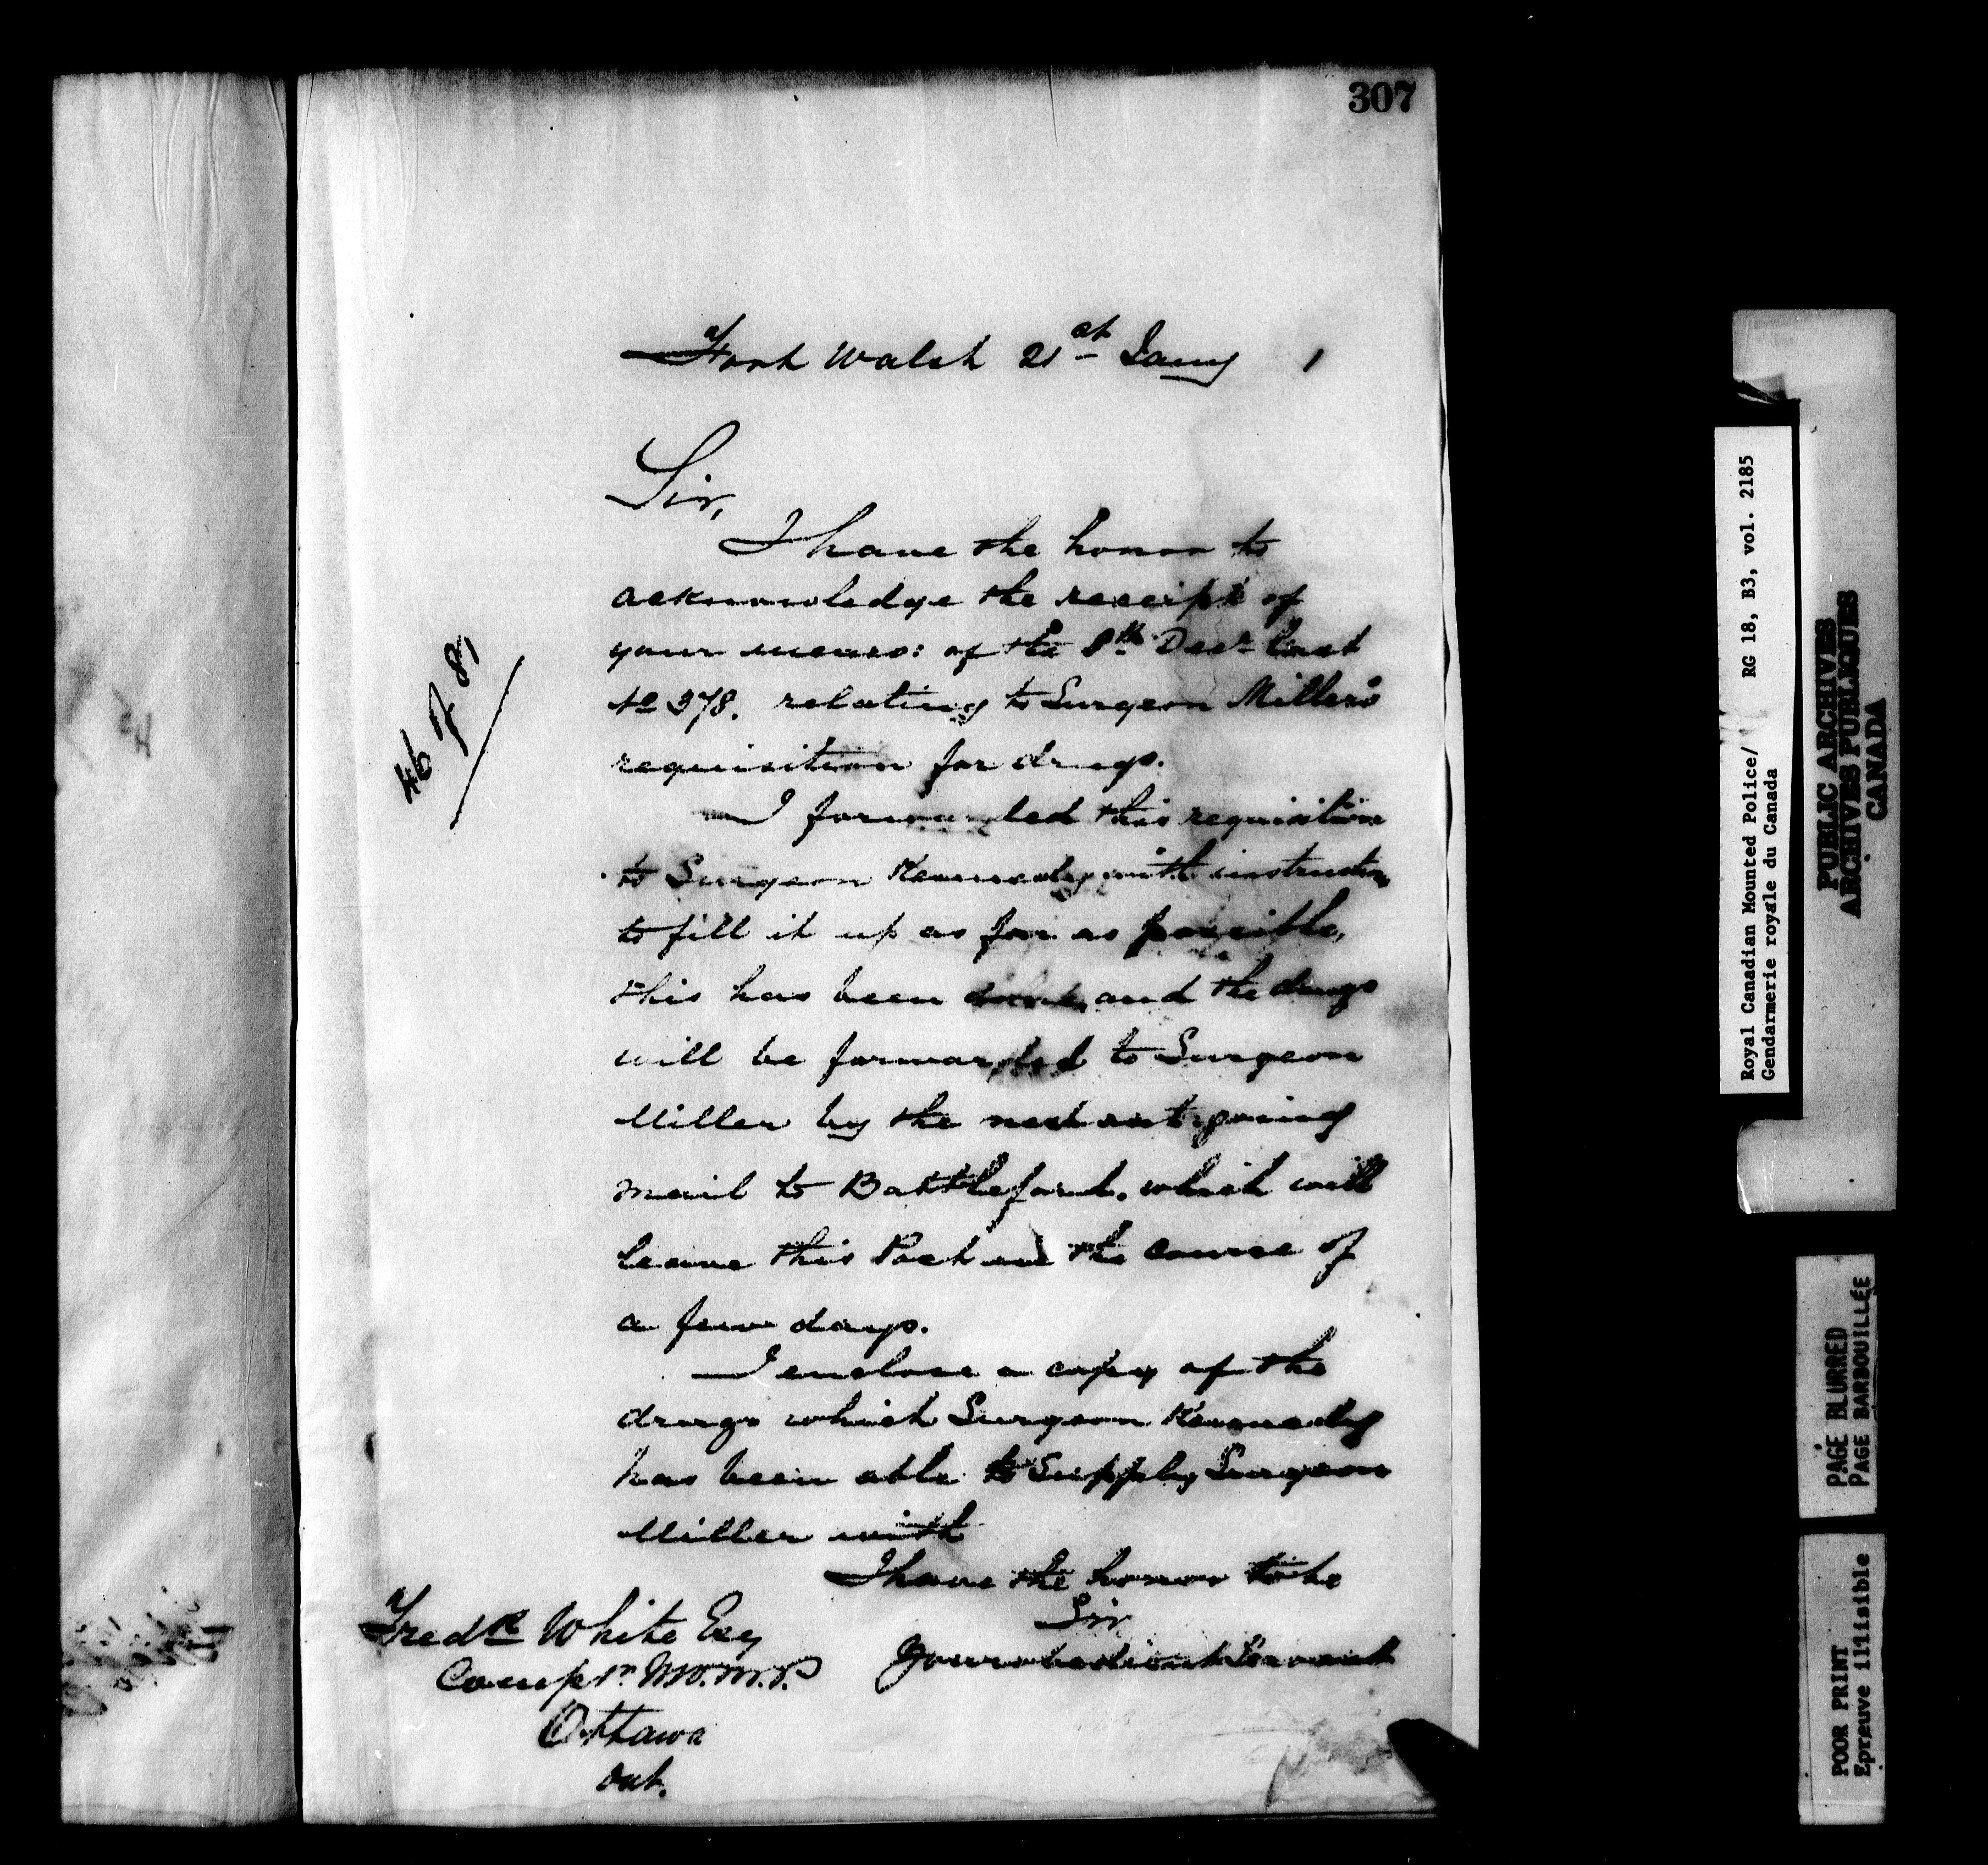 307
Fort Walsh 21st Jany 1
Sir,
I have the honor to
acknowledge the receipt of
your memo: of the 8th Decr last
No 378. relating to Surgeon Miller's
requisition for drugs.
I forwarded this requisition
to Surgeon Kennedy with instructions
to fill it up as far as possible,
this has been done, and the drugs
will be forwarded to Surgeon
Miller by the next out going
mail to Battleford. which will
leave this Post in the course of
a few days.
I enclose a copy of the
drugs which Surgeon Kennedy
has been able to supply Surgeon
Miller with
I have the honor to be
Sir
Your obedient Servant
Fredk White Esq
Comptr. N.W.M.P.
Ottawa
Ont.
46
Royal Canadian Mounted Police/ RG 18, B3, vol. 2185
Gendarmerie royale du Canada
PUBLIC ARCHIVES
ARCHIVES PUBLIQUES
CANADA
PAGE BLURRED
PAGE BARBOUILLÉE
POOR PRINT
Epreuve illisible